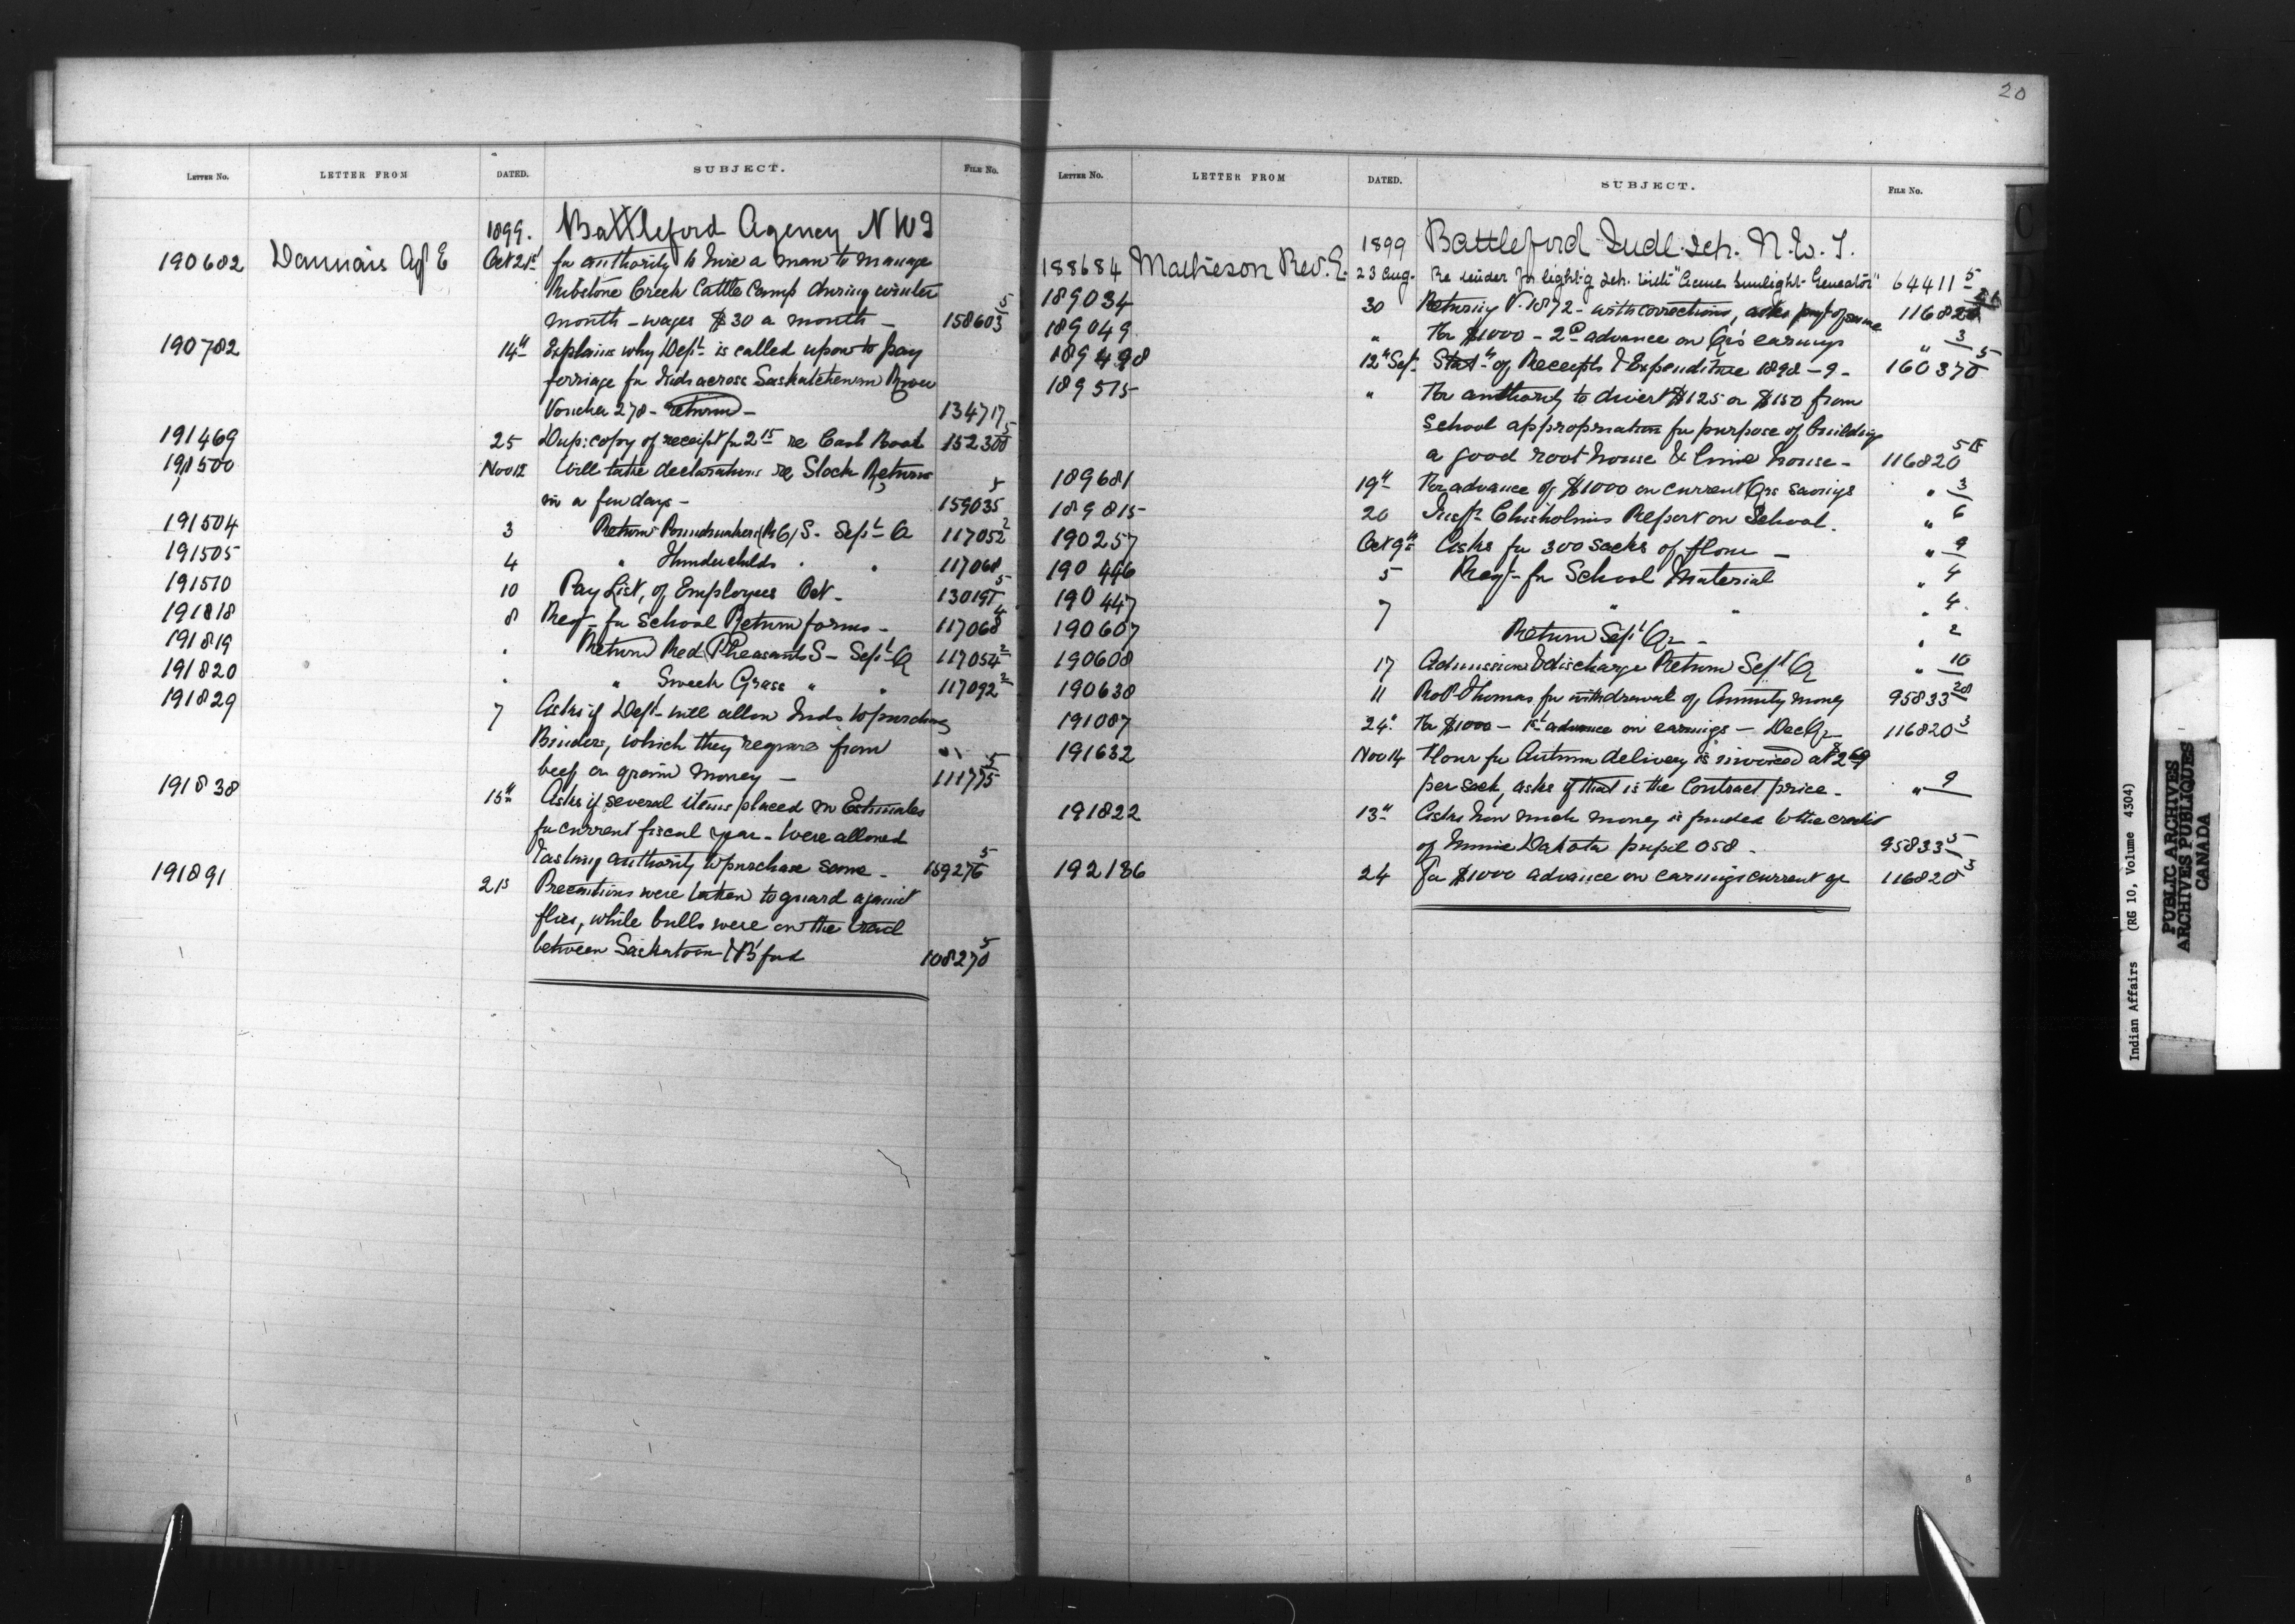 20
LETTER NO. LETTER FROM DATED. SUBJECT. FILE NO.
1899. Battleford Agency N W T
190682 Daunais Agt E Oct 21st for authority to hire a man to manage
Ribstone Creek Cattle Camp during winter
month - wages $30 a month - 158603 5
190782 14th Explains why Dept. is called upon to pay
ferriage for Inds across Saskatchewan River
Voucher 278 - return - 134717
191469 25 Dup: copy of receipt for 2 15 re Cash Book 152300 5
191500 Nov 12 Will take declarations re Stock Returns
in a few days - 159035 5
191504 3 Return Poundmakers (RC) S. Sept Q 117052 2
191505 4 " Thunderchilds " " 117068
191510 10 Pay List, of Employees Oct - 130191 5
191818 8 Reqt - for School Return forms - 117068 4
191819 " Return Red Pheasants S - Sept Q 117054 2
191820 " " Sweet Grass " " 117092 2
191829 7 Asks if Dept - will allow Inds to purchase
Binders, which they require from
beef or grain money - 111775 5
191838 15th Asks if several items placed in Estimates
for current fiscal year - were allowed
& asking authority to purchase same - 159276 5
191891 21s Precautions were taken to guard against
flies, while bulls were on the trail
between Saskatoon & B'ford 108270 5
LETTER NO. LETTER FROM DATED. SUBJECT. FILE NO.
1899 Battleford Indl. Sch. N. W. T.
188684 Matheson Rev. E. 23 Aug. Re tender for light-g Sch. with "Acme Sunlight - Generator" 64411 5
189034 30 Returning V. 1872 - with corrections, asks payt of same 116820
189049 " For $1000 - 2d advance on Qrs earnings " 3
189498 12th Sep. Statt of Receipts & Expenditure 1898-9 - 160370 5
189515 " For authority to divert $125 or $150 from
School appropriation for purpose of building
a good root house & lime house - 116820 15
189681 19th For advance of $1000 on current Qrs savings " 3
189815 20 Insp. Chisholms Report on School. " 6
190257 Oct 9th Asks for 300 sacks of flour - " 9
190446 5 Reqt - for School Material " 4
190447 7 " " " " 4.
190607 Return Sept Qr - " 2
190608 17 Admission & discharge Return Sept Q " 10
190638 11 Robt Thomas for withdrawal of Annuity money 95833 28
191087 24th For $1000 - 1st advance on earnings - Dec Qr 116820 3
191632 Nov 14 Flour for Autumn delivery is invoiced at $2 69
per sack, asks if that is the Contract price - " 9
191822 13th Asks how much money is funded to the credit
of Minnie Dakota pupil 058 - 95833 5
192186 24 for $1000 advance on earnings current qr 116820 3
Indian Affairs (RG 10, Volume 4304)
PUBLIC ARCHIVES
ARCHIVES PUBLIQUES
CANADA